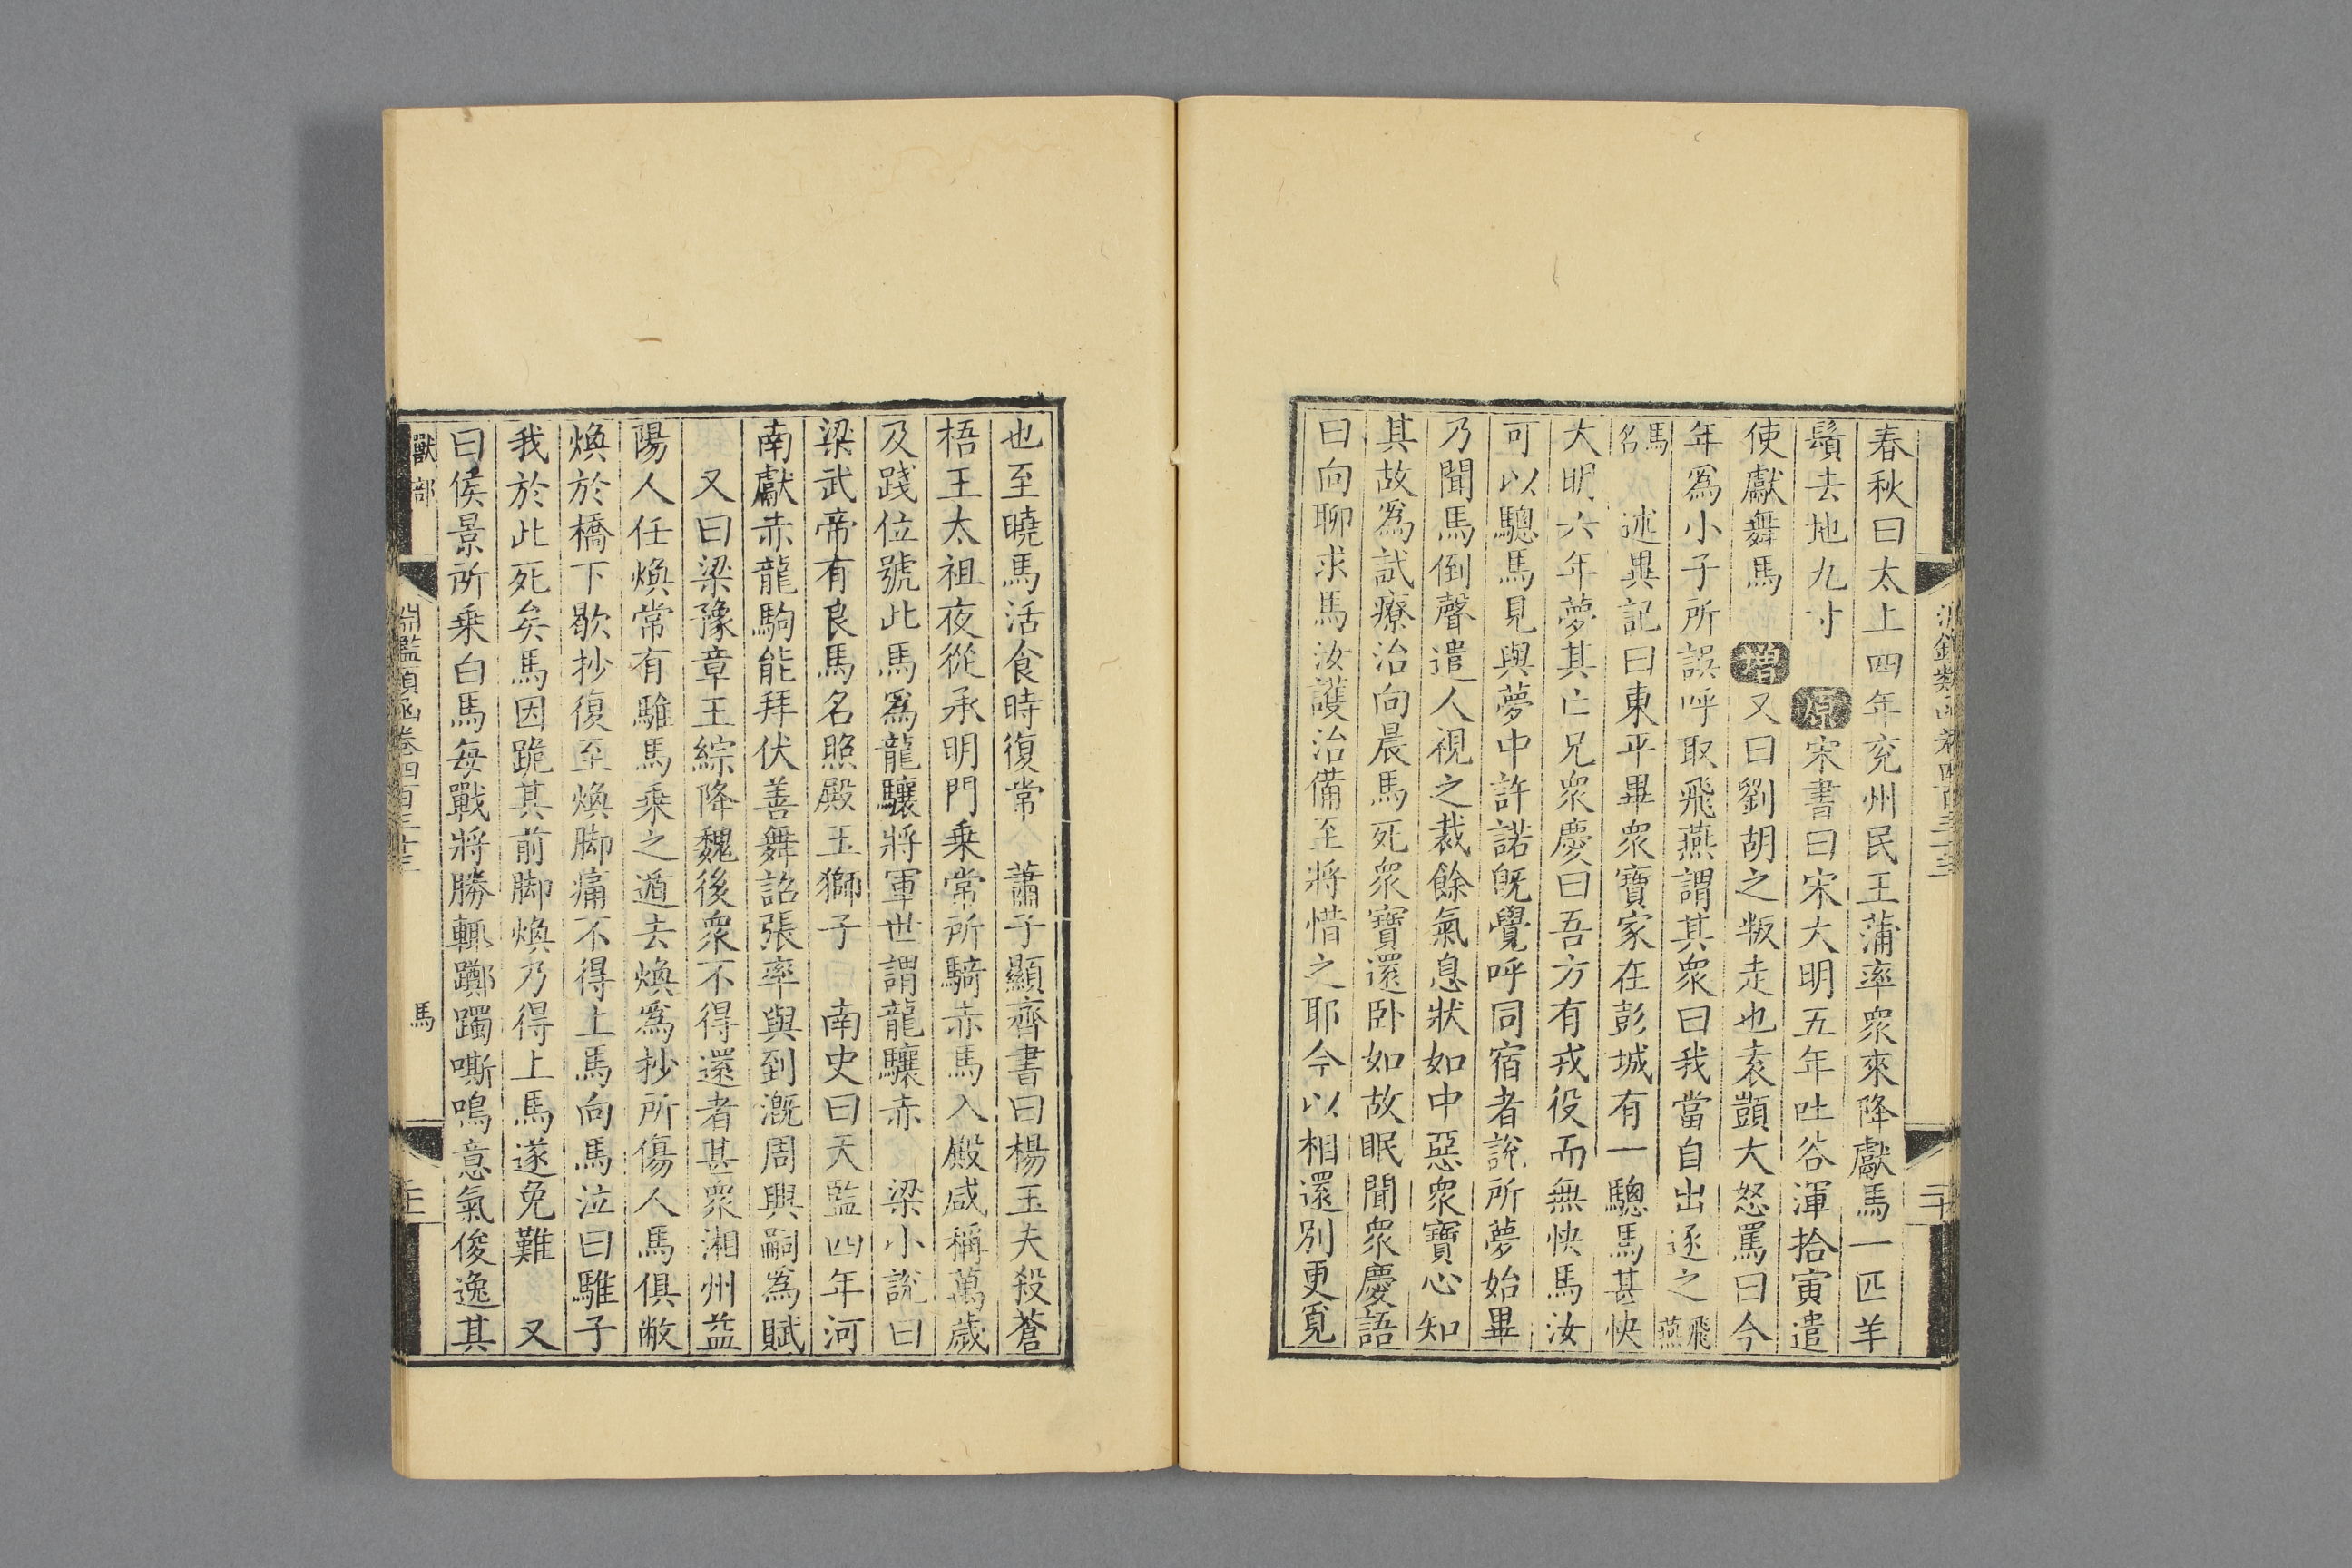 春秋曰太上四年兖州民王蒲率衆來降獻馬一匹羊
鬚去地九寸 原 宋書曰宋大明五年吐谷渾拾寅遣
使獻舞馬 増 又曰劉胡之叛走也袁顗大怒罵曰今
年爲小子所誤呼取飛燕謂其衆曰我當自出逐之 飛燕
馬名 述異記曰東平畢衆寶家在彭城有一驄馬甚快
大明六年夢其亡兄衆慶曰吾方有戎役而無快馬汝
可以驄馬見與夢中許諾既覺呼同宿者說所夢始畢
乃聞馬倒聲遣人視之裁餘氣息狀如中惡衆寶心知
其故爲試療治向晨馬死衆寶還卧如故眠聞衆慶語
曰向聊求馬汝護治備至將惜之耶今以相還別更覓
也至曉馬活食時復常 蕭子顯齊書曰楊玉夫殺蒼
梧王太祖夜從承明門乘常所騎赤馬入殿咸稱萬歲
及踐位號此馬爲龍驤將軍世謂龍驤赤 梁小說曰
梁武帝有良馬名照殿玉獅子 南史曰天監四年河
南獻赤龍駒能拜伏善舞詔張率與到漑周興嗣爲賦
又曰梁豫章王綜降魏後衆不得還者甚衆湘州益
陽人任煥常有騅馬乘之遁去煥爲抄所傷人馬俱敝
煥於橋下歇抄復至煥脚痛不得上馬向馬泣曰騅子
我於此死矣馬因跪其前脚煥乃得上馬遂免難 又
曰侯景所乘白馬每戰將勝輒躑躅嘶鳴意氣俊逸其
獸部 淵鑑類函卷四百三十三 馬